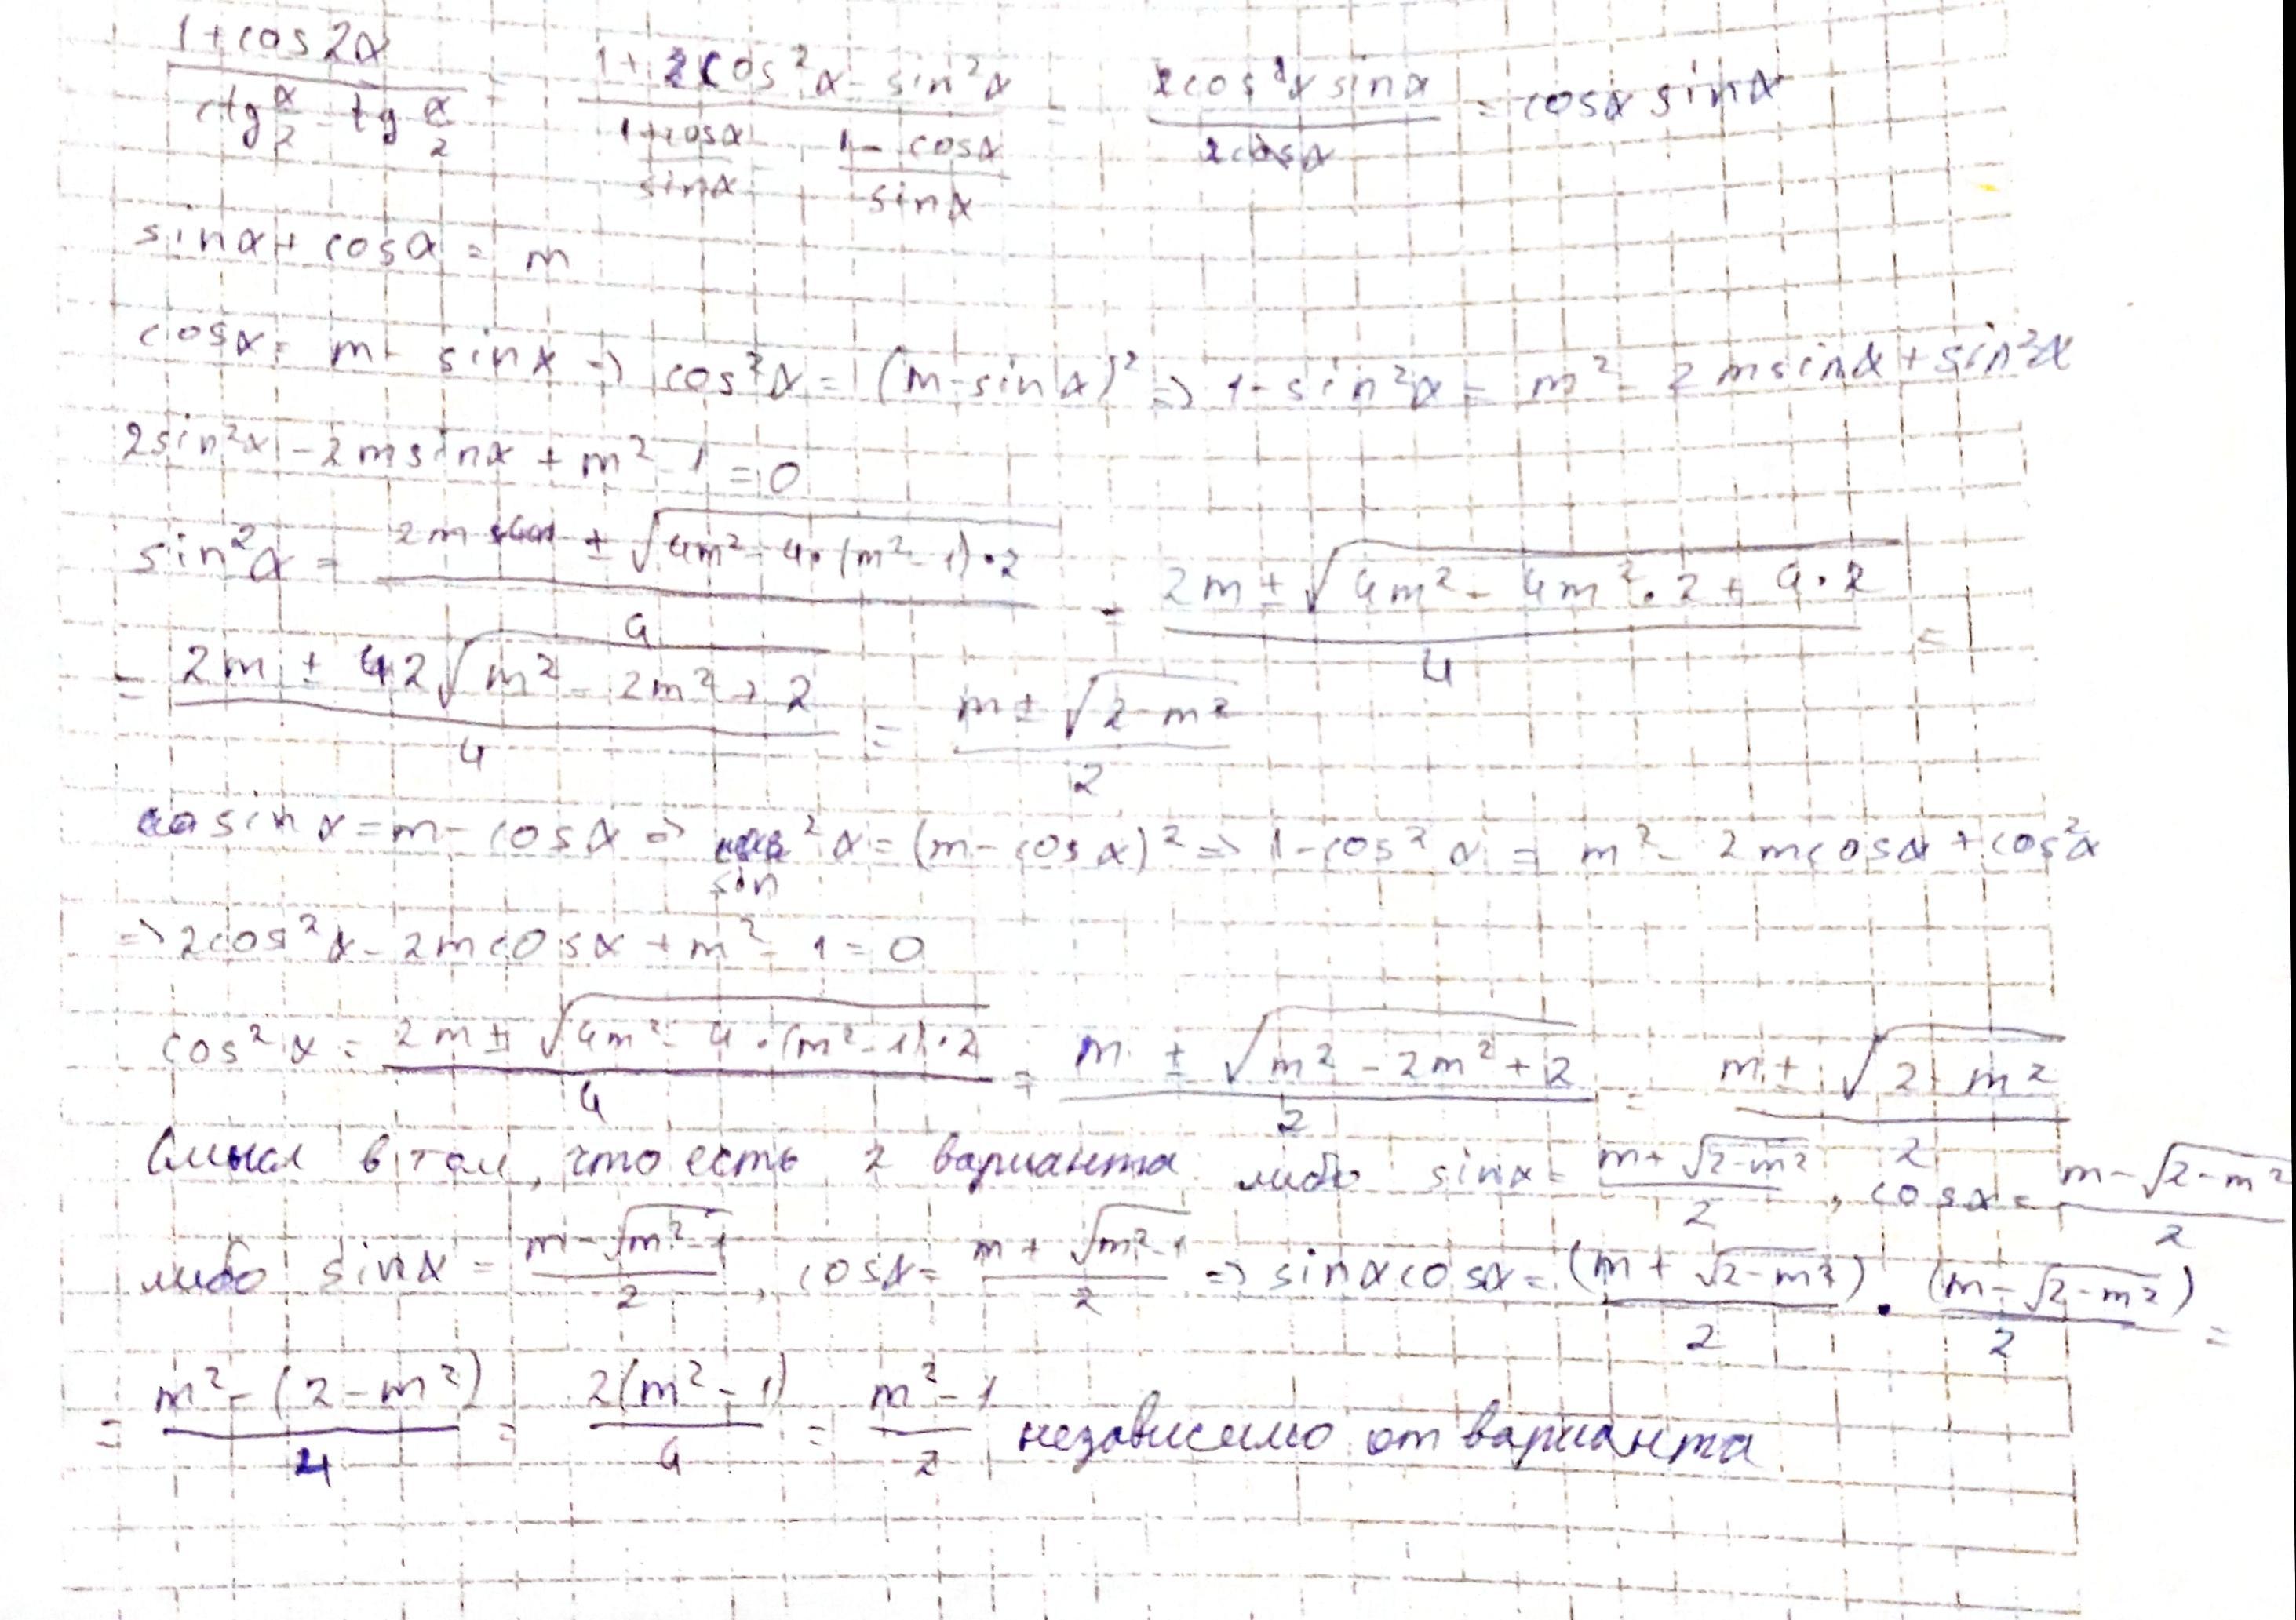 (1+cos2α)/(ctg α/2 - tg α/2) = (1+cos²α - sin²α)/((1+cosα)/sinα - (1-cosα)/sinα) = (2cos²α sinα)/(2cosα) = cosα sinα
sinα + cosα = m
cosα = m - sinα => cos²α = (m-sinα)² => 1-sin²α = m² - 2msinα + sin²α
2sin²α - 2msinα + m² - 1 = 0
sin²α = (2m ± √(4m² - 4·(m²-1)·2))/4 = (2m ± √(4m² - 4m²·2 + 4·2))/4 =
= (2m ± 2√(m² - 2m² + 2))/4 = (m ± √(2-m²))/2
sinα = m - cosα => sin²α = (m-cosα)² => 1-cos²α = m² - 2mcosα + cos²α
=> 2cos²α - 2mcosα + m² - 1 = 0
cos²α = (2m ± √(4m² - 4·(m²-1)·2))/4 = (m ± √(m² - 2m² + 2))/2 = (m ± √(2-m²))/2
Смысл в том, что есть 2 варианта либо sinα = (m+√(2-m²))/2, cosα = (m-√(2-m²))/2
либо sinα = (m-√(m²-1))/2, cosα = (m+√(m²-1))/2 => sinαcosα = (m+√(2-m²))/2 · (m-√(2-m²))/2 =
= (m²-(2-m²))/4 = 2(m²-1)/4 = (m²-1)/2 независимо от варианта